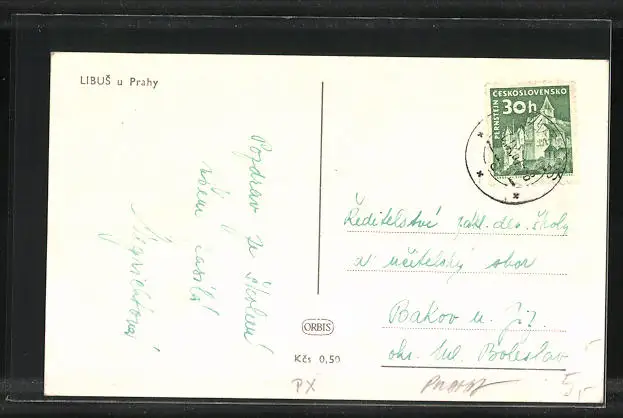 LIBUŠ u Prahy
Pozdrav ze školení
všem zasílá
PERNŠTEJN
ČESKOSLOVENSKO
30h
Ředitelství zákl. dev. školy
a učitelský sbor
Bakov n. Jiz.
okr. Ml. Boleslav
ORBIS
Kčs 0,50
PX
5,-